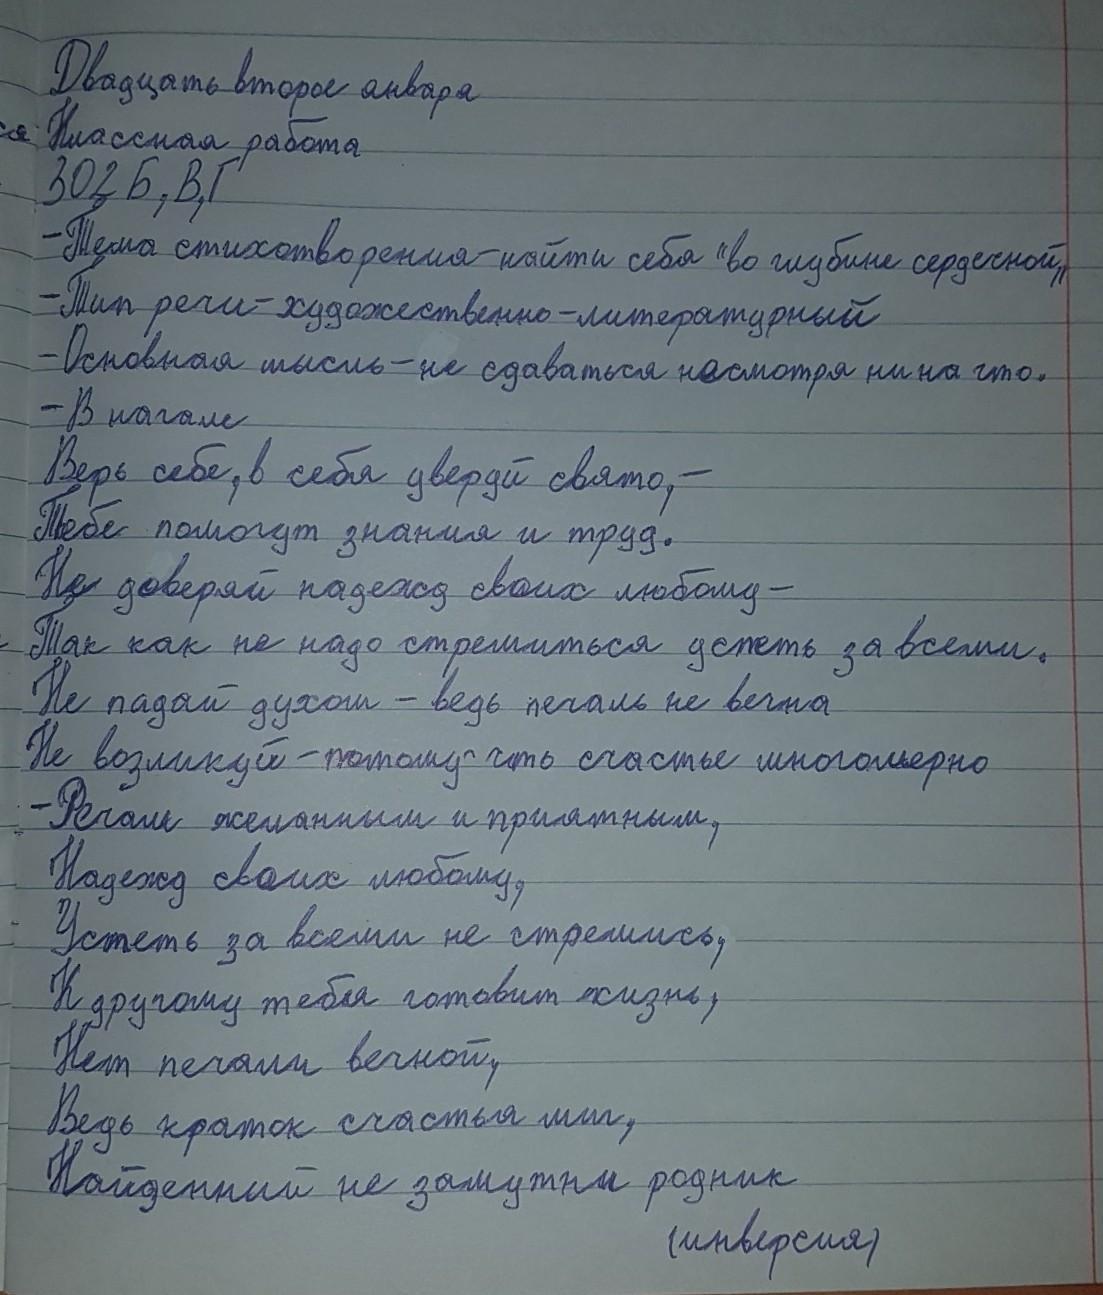 Двадцать второе января
ся Классная работа
302 Б, В, Г
-Тема стихотворения-найти себя "во глубине сердечной"
-Тип речи-художественно-литературный
-Основная мысль-не сдаваться несмотря ни на что.
-В начале
Верь себе, в себя уверуй свято,-
Тебе помогут знания и труд.
Не доверяй надежд своих любому-
Так как не надо стремиться успеть за всеми.
Не падай духом - ведь печаль не вечна
Не возликуй-потому что счастье многомерно
-Речам желанным и приятным,
Надежд своих любому,
Успеть за всеми не стремись,
К другому тебя готовит жизнь,
Нет печали вечной,
Ведь краток счастья миг,
Найденный не замутни родник
(инверсия)